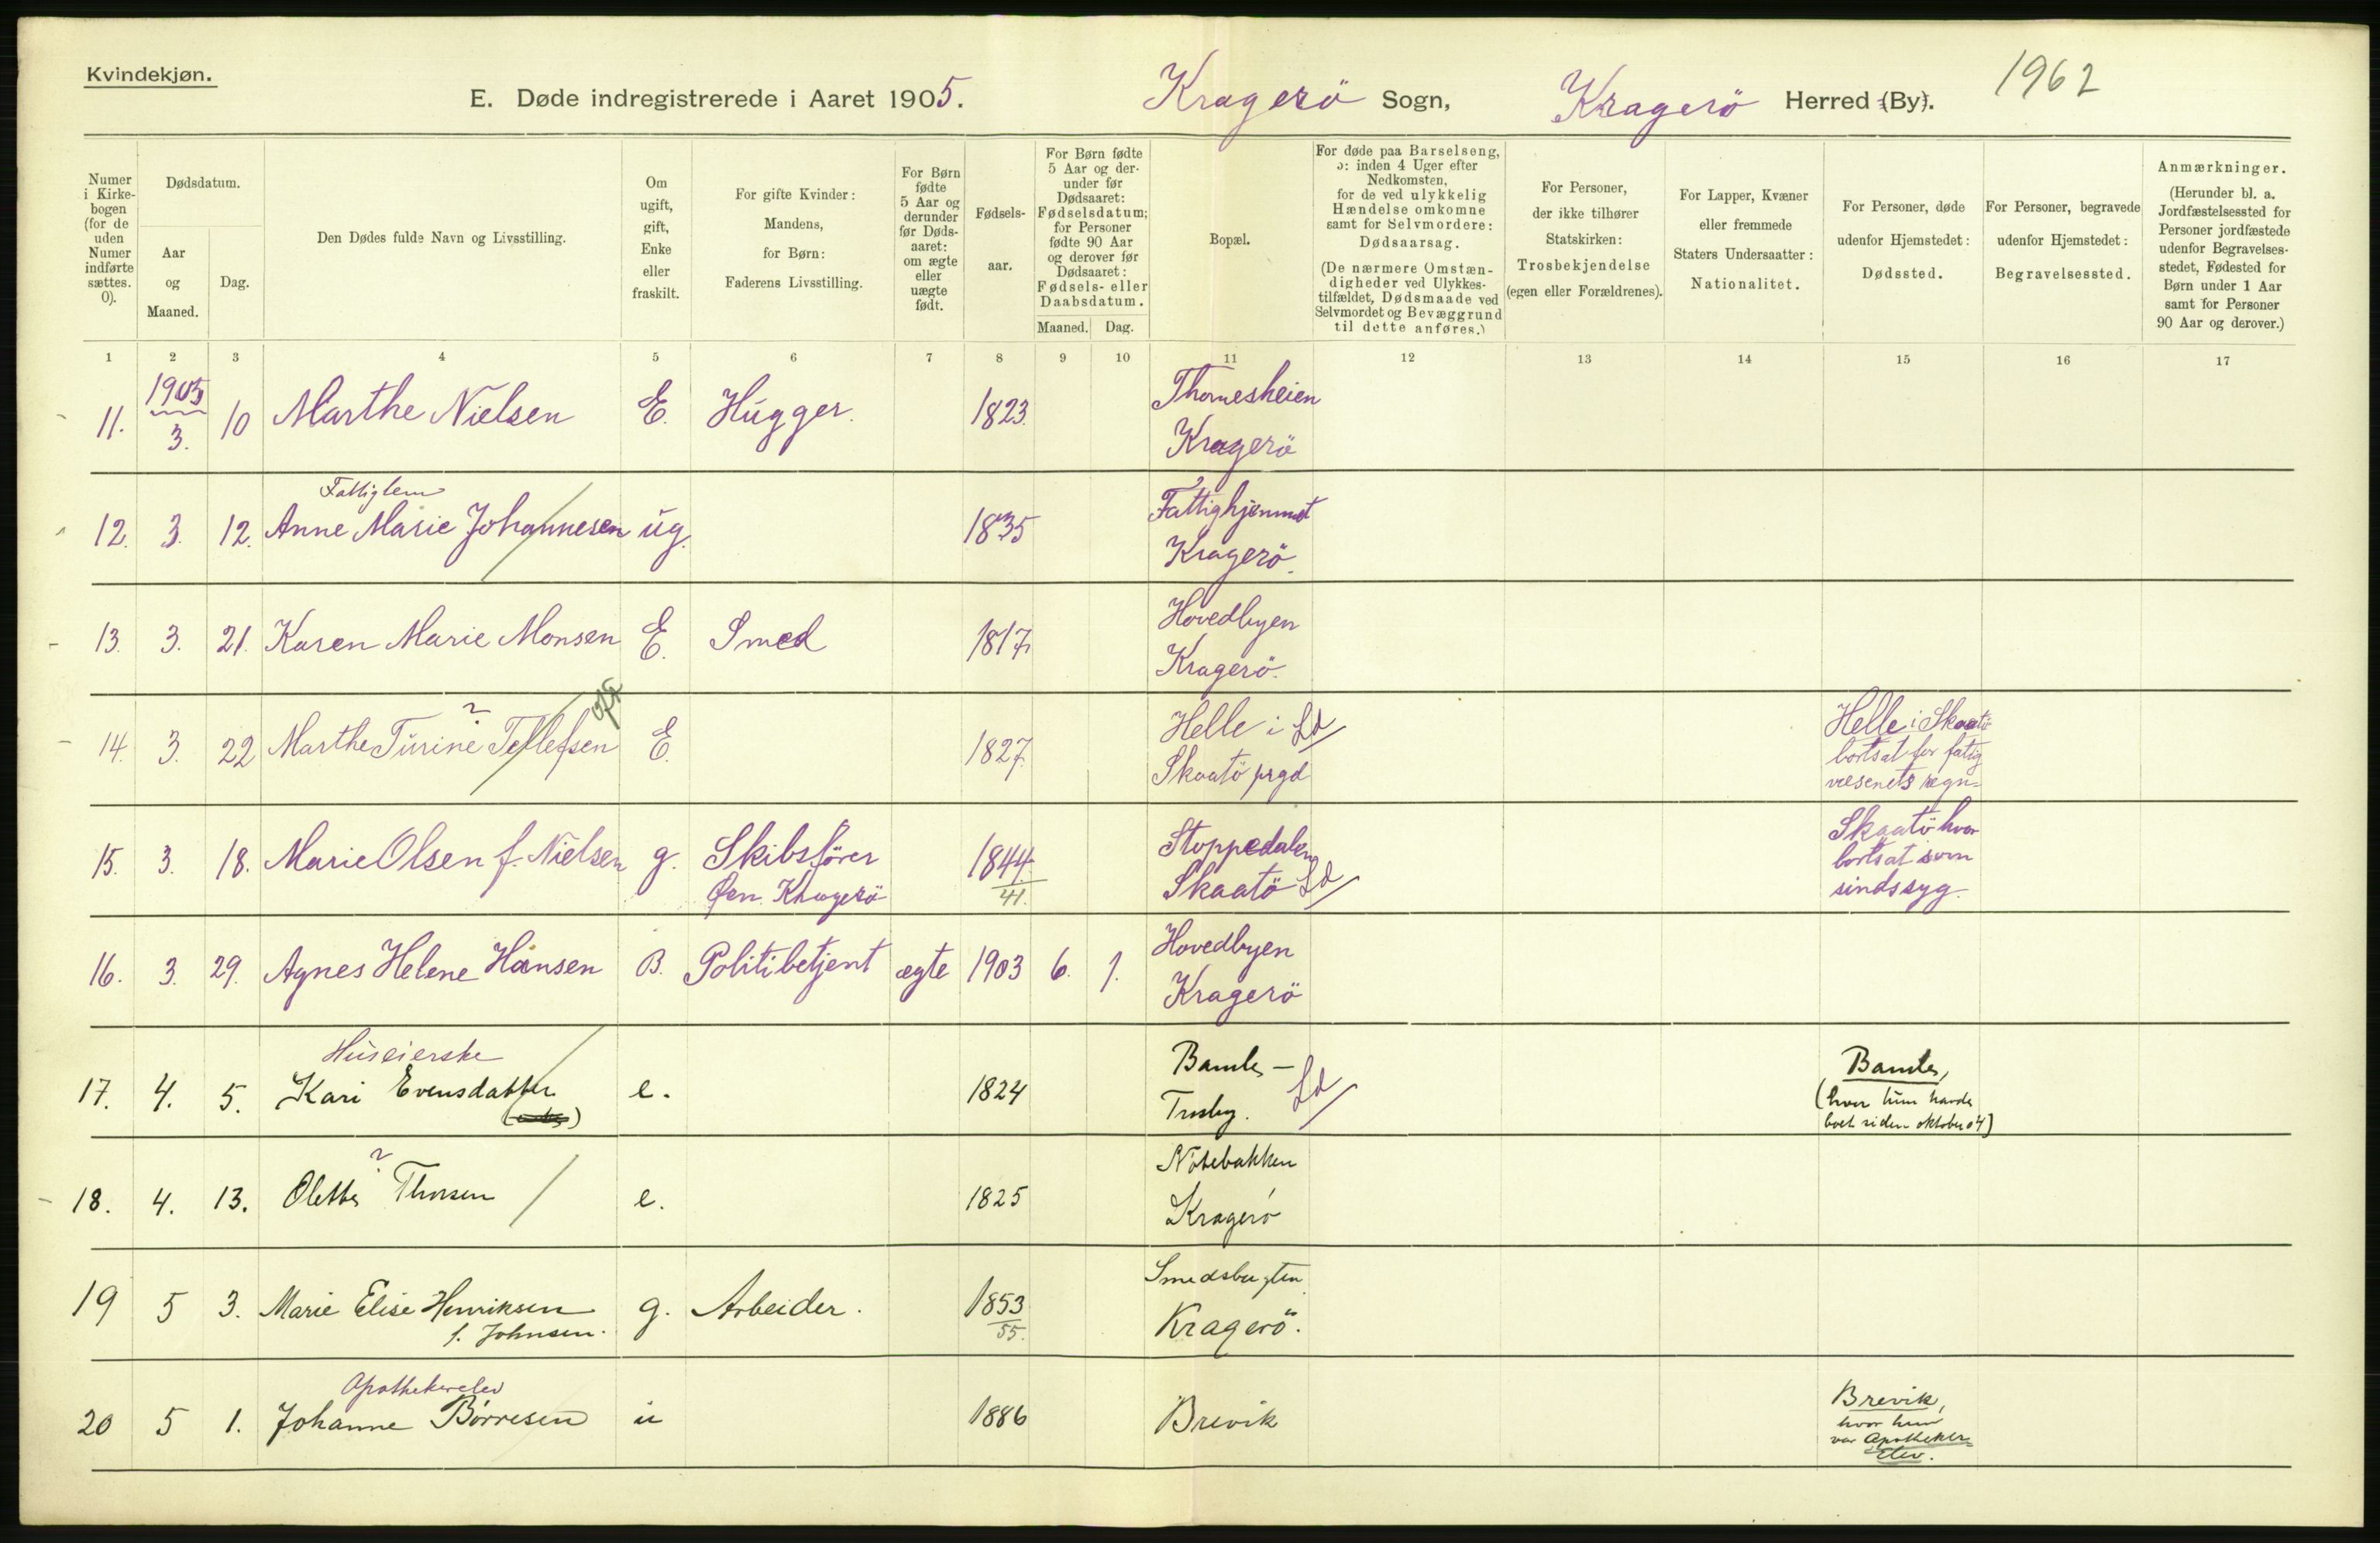 Kvindekjøn.
E. Døde indregistrerede i Aaret 1905. Kragerö Sogn, Kragerö Herred (By). 1962
Numer i Kirkebogen (for de uden Numer indførte sættes. 0).
Dødsdatum.
Aar og Maaned.
Dag.
Den Dødes fulde Navn og Livsstilling.
Om ugift, gift, Enke eller fraskilt.
For gifte Kvinder: Mandens, for Børn: Faderens Livsstilling.
For Børn fødte 5 Aar og derunder før Dødsaaret: om ægte eller uægte født.
Fødselsaar.
For Børn fødte 5 Aar og derunder før Dødsaaret: Fødselsdatum; for Personer fødte 90 Aar og derover før Dødsaaret: Fødsels- eller Daabsdatum.
Maaned. Dag.
Bopæl.
For døde paa Barselseng, ɔ: inden 4 Uger efter Nedkomsten, for de ved ulykkelig Hændelse omkomne samt for Selvmordere: Dødsaarsag.
(De nærmere Omstændigheder ved Ulykkestilfældet, Dødsmaade ved Selvmordet og Bevæggrund til dette anføres.)
For Personer, der ikke tilhører Statskirken: Trosbekjendelse (egen eller Forældrenes).
For Lapper, Kvæner eller fremmede Staters Undersaatter: Nationalitet.
For Personer, døde udenfor Hjemstedet: Dødssted.
For Personer, begravede udenfor Hjemstedet: Begravelsessted.
Anmærkninger.
(Herunder bl. a. Jordfæstelsessted for Personer jordfæstede udenfor Begravelsesstedet, Fødested for Børn under 1 Aar samt for Personer 90 Aar og derover.)
1 2 3 4 5 6 7 8 9 10 11 12 13 14 15 16 17
11. 1905 3. 10 Marthe Nielsen E. Hugger. 1823. Thomesheien
Kragerö
Fattiglem
12. 3. 12. Anne Marie Johannesen ug. 1835 Fattighjemmet
Kragerö.
13. 3. 21. Karen Marie Monsen E. Smed 1817 Hovedbyen
Kragerö.
?
14. 3. 22 Marthe Turine Tellefsen E. 1827. Helle i Ld
Skaatö prgd
Helle i Skaatö
bortsat for fatig
væsenets regn=
15. 3. 18. Marie Olsen f. Nielsen g. Skibsförer
Øen Kragerö
1844.
41.
Stoppedalen
Skaatö Ld
Skaatö hvor
bortsat som
sindssyg.
16. 3. 29. Agnes Helene Hansen B. Politibetjent ægte 1903 6. 1. Hovedbyen
Kragerö
Huseierske
17. 4. 5. Kari Evensdatter e. 1824 Bamle –
Trosby. Ld
Bamle,
(hvor hun havde
boet siden oktober 04)
?
18. 4. 13. Olette Thorsen e. 1825
Kragerö
19 5 3. Marie Elise Henriksen
f. Johnsen.
g. Arbeider. 1853
55.
Smedsbugten
Kragerö.
Apothekerelev
20 5 1. Johanne Börresen u 1886 Brevik
Brevik,
hvor hun
var Apotheker=
Elev.